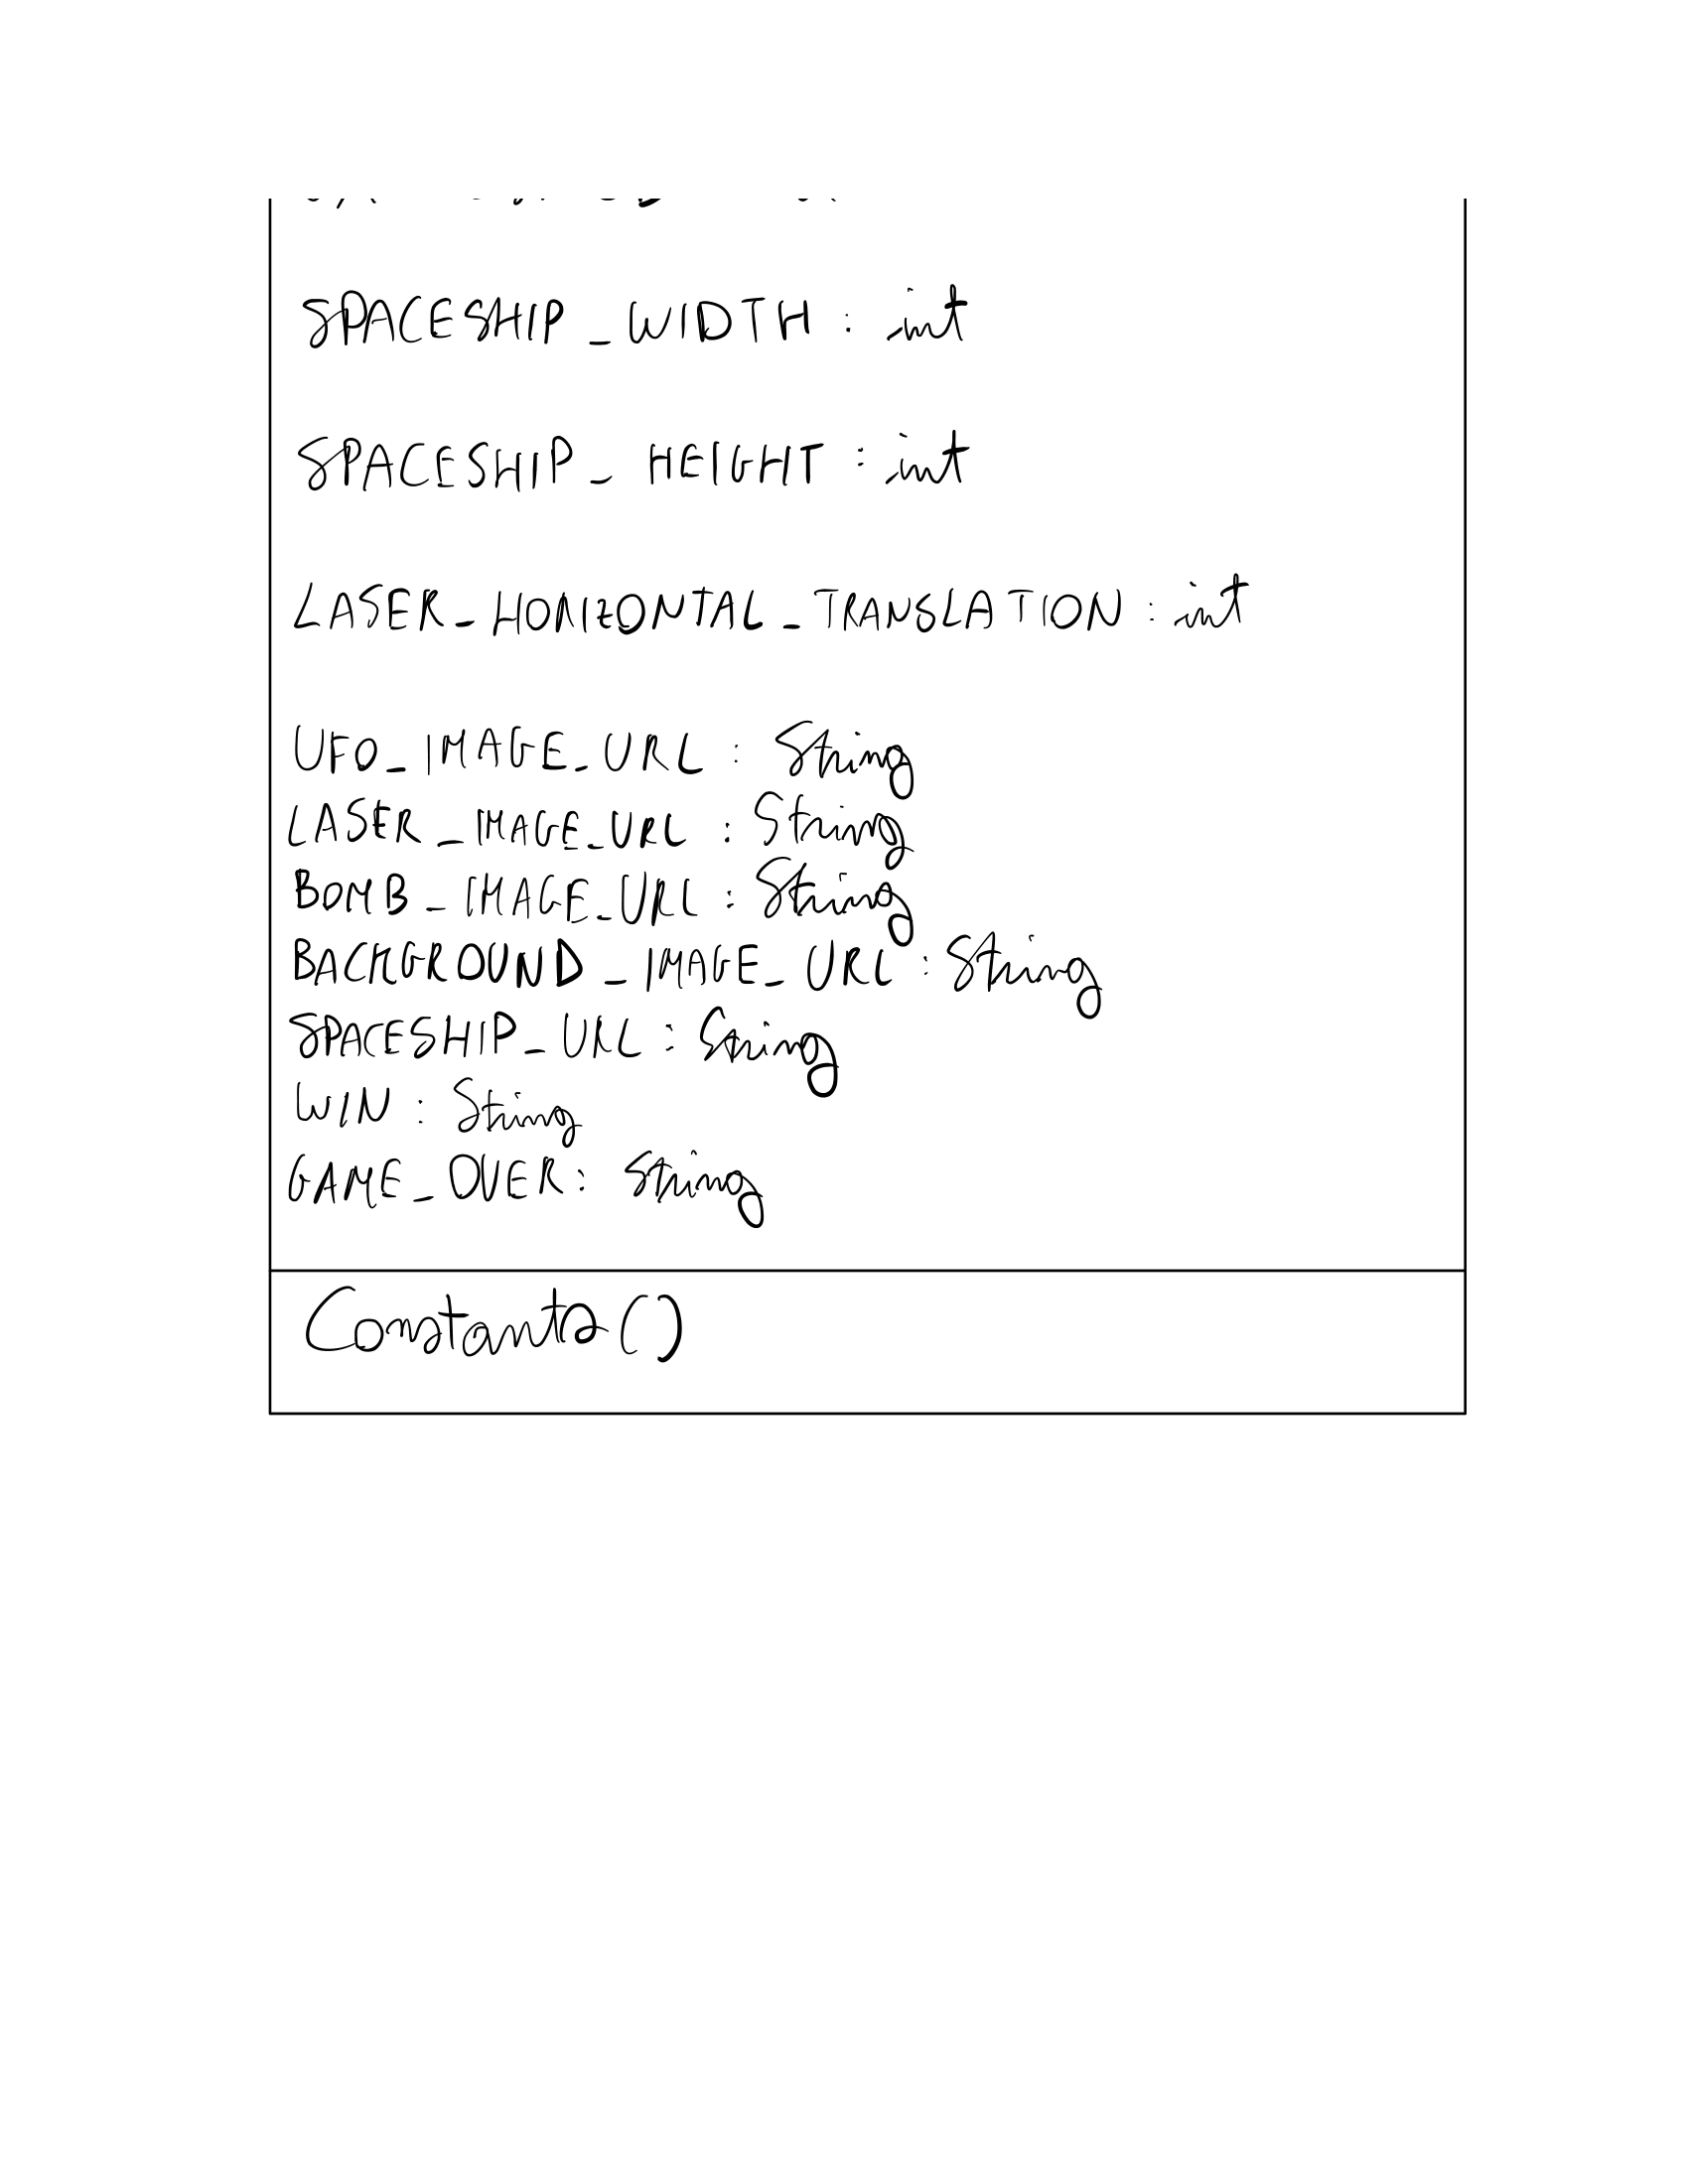 SPACESHIP_WIDTH : int
SPACESHIP_HEIGHT : int
LASER_HORIZONTAL_TRANSLATION : int
UFO_IMAGE_URL : String
LASER_IMAGE_URL : String
BOMB_IMAGE_URL : String
BACKGROUND_IMAGE_URL : String
SPACESHIP_URL : String
WIN : String
GAME_OVER : String
Constants()